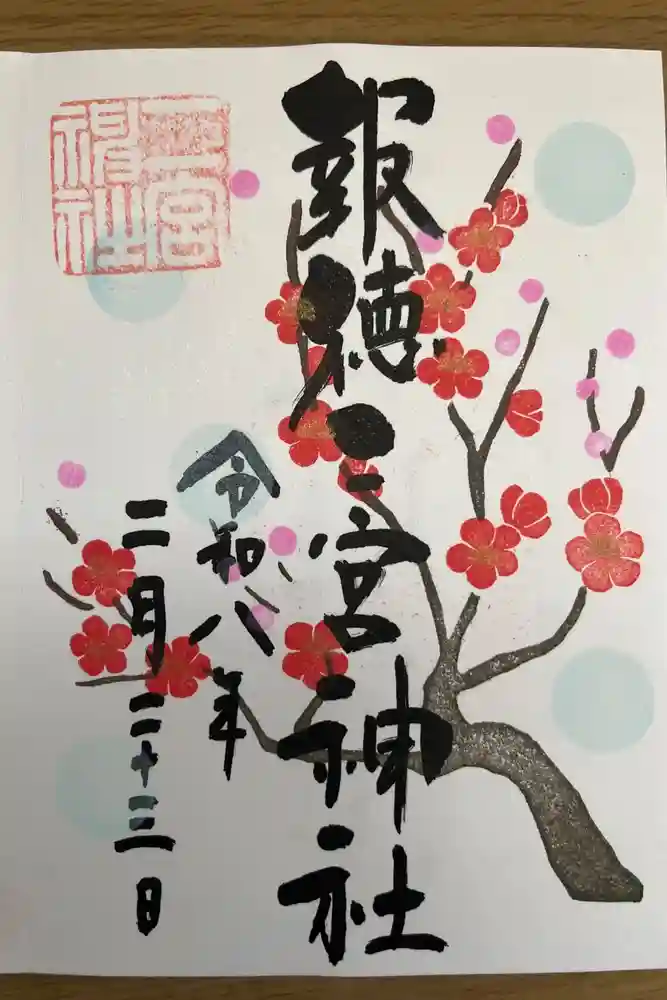 報徳二宮神社
令和八年
二月二十三日
二宮
神社